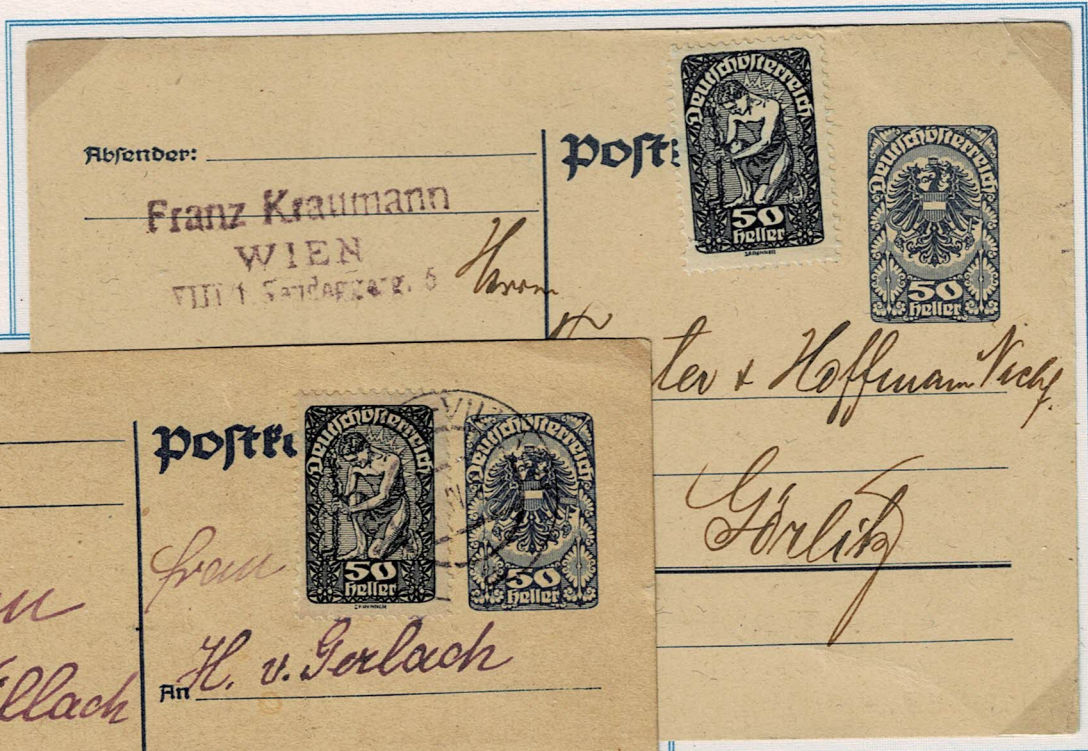 Absender:
Franz Kraumann
WIEN
VIII/1.
Postk
Deutschösterreich
50
Heller
Deutschösterreich
50
Heller
Herrn
ter & Hoffmann Nachf.
Görlitz
Postka
Deutschösterreich
50
Heller
Deutschösterreich
50
Heller
Frau
An H. v. Gerlach
llach